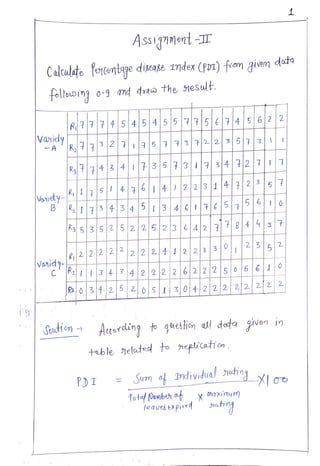 1
Assignment-II
Calculate Percentage disease Index (PDI) from given data
following 0-9 and draw the result.
R₁ 7 7 7 4 5 4 5 4 5 5 7 7 5 6 7 4 5 6 2 2
Variety -A R₂ 7 7 3 2 7 1 7 5 7 7 3 7 2 2 3 5 7 3 1 1
R₃ 7 7 4 3 4 1 7 3 5 7 3 1 7 3 4 7 2 7 1 7
Variety- B R₁ 1 7 5 1 4 7 6 1 4 1 2 2 3 1 4 7 2 3 5 7
R₂ 1 7 3 4 3 4 5 1 3 4 6 1 7 6 5 7 5 6 1 0
R₃ 5 3 5 2 5 2 2 5 2 3 6 4 2 7 7 8 4 4 3 7
Variety- C R₁ 2 2 2 2 2 2 2 2 4 1 2 2 3 3 0 1 2 3 5 2
R₂ 1 1 3 4 3 4 2 2 2 2 6 2 2 2 5 0 5 6 1 0
R₃ 0 3 4 2 5 2 0 5 1 3 0 4 2 2 2 2 2 2 2 2
Solution → According to question all data given in
table related to replication.
PDI = Sum of Individual rating X100
Total Number of leaves x maximum
rating